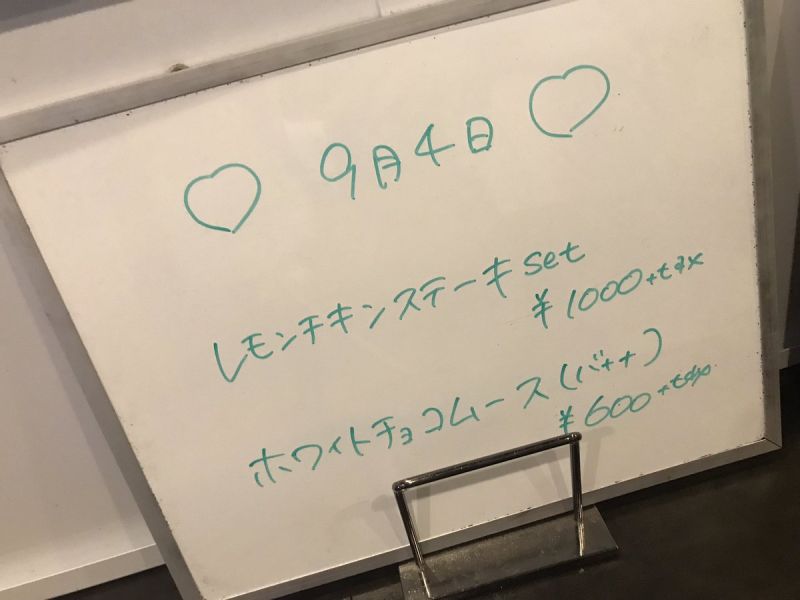 9月4日
レモンチキンステーキset
¥1000+tax
ホワイトチョコムース(バナナ)
¥600+tax